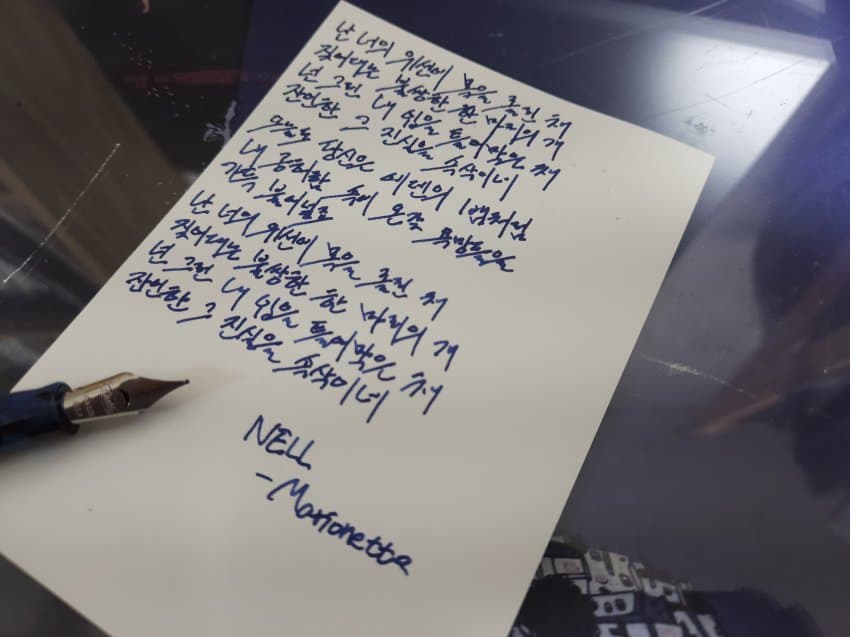 난 너의 위선에 목을 졸린 채
짖어대는 불쌍한 한 마리의 개
넌 그런 내 입을 틀어막은 채
잔인한 그 진실을 속삭이네
오늘도 당신은 에덴의 뱀처럼
내 공허함 속에 온갖 욕망들을
가득 불어넣고
난 너의 위선에 목을 졸린 채
짖어대는 불쌍한 한 마리의 개
넌 그런 내 입을 틀어막은 채
잔인한 그 진실을 속삭이네
NELL
- Marionette